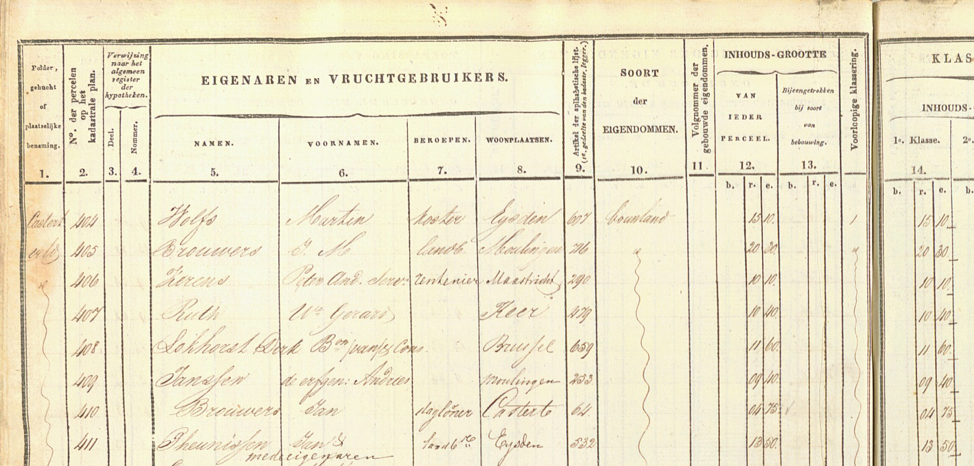 Polder, gehucht of plaatselijke benaming.
No. der perceelen op het kadastrale plan.
Verwijzing naar het algemeen register der hypotheken.
Deel.
Nommer.
EIGENAREN EN VRUCHTGEBRUIKERS.
NAMEN.
VOORNAMEN.
BEROEPEN.
WOONPLAATSEN.
Artikel der alphabetische lijst.
SOORT der EIGENDOMMEN.
Volgnommer der gebouwde eigendommen.
INHOUDS-GROOTTE
VAN IEDER PERCEEL.
Bijeengetrokken bij soort van bebouwing.
Voorloopige klassering.
KLAS
INHOUDS-
1e. Klasse.
2e.
1. 2. 3. 4. 5. 6. 7. 8. 9. 10. 11. 12. 13. 14.
b. r. e. b. r. e. b. r. e. b.
Castert 404 Wolfs Martin koster Eysden 607 bouwland 15 10. 1 15 10
405 Brouwers J. M landb. Moulingen 216 " 20 30 " 20 30
" 406 Lerens Peter And. rentenier Maastricht 290 10 10. 10 10
407 Ruth We Gerard Heer 479 10 40 10 40
408 Lokhorst Derk Bon van & Cons Brussel 659 11 60 11 60
409 Janssen de erfgen: Andries Moulingen 233 09 40 09 40
410 Brouwers Jan daglöner Castert 64 04 75 04 75
411 Theunissen Jan & Eysden 532 13 50. 13 50
medeeigenaren